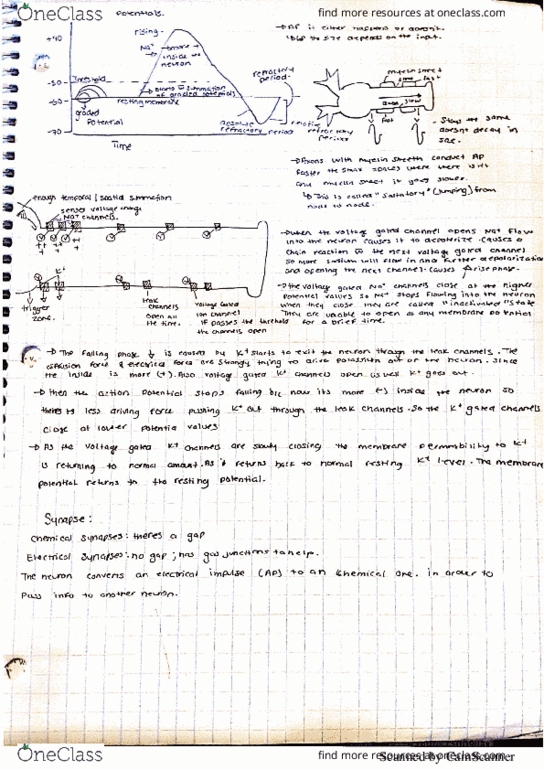 OneClass
find more resources at oneclass.com
potentials.
+40
rising
Na+ more +
inside the
neuron
-50
Threshold
-60
resting membrane
graded
potential
-70
Time
refractory
period
absolute
refractory period
relative
refractory
period
AP is either happens or doesn't.
the size depends on the input.
myelin sheath
fast
slow
Stays the same
doesn't decay in
size.
→ Axons with myelin sheath conduct AP
faster
and myelin sheet it goes slower.
↳ This is called "saltatory" (jumping) from
node to node.
enough temporal | spatial summation
senses voltage change
Na+ channels.
K+
trigger
zone.
leak
channels
open all
the time.
voltage gated
ion channel
if passes the threshold
the channels open
→ when the voltage gated channel opens Na+ flow
into the neuron causes it to depolarize. causes a
chain reaction → the next voltage gated channel
so more sodium will flow in and further depolarization
and opening the next channel. causes rise phase.
→ the voltage gated Na+ channels close at the higher
potential values so Na+ stops flowing into the neuron
when they close they are called "inactivated" state
They are unable to open at any membrane potential
for a brief time.
→ The falling phase is caused by K+ starts to exit the neuron through the leak channels. The
diffusion force & electrical force are strongly trying to drive potassium out of the neuron. since
the inside is more (+). Also voltage gated K+ channels open K+ goes out.
→ then the action potential stops falling b/c now its more (-) inside the neuron so
theres less driving force pushing K+ out through the leak channels. So the K+ gated channels
close at lower potential values
→ As the voltage gated K+ channels are slowly closing the membrane permeability to K+
is returning to normal amount. As it returns back to normal resting K+ level. The membrane
potential returns to the resting potential.
Synapse:
Chemical synapses: theres a gap
Electrical Synapses: no gap; has gap junctions to help.
The neuron converts an electrical impulse (AP) to an chemical one. in order to
pass info to another neuron.
OneClass
find more resources at oneclass.com
Scanned by CamScanner